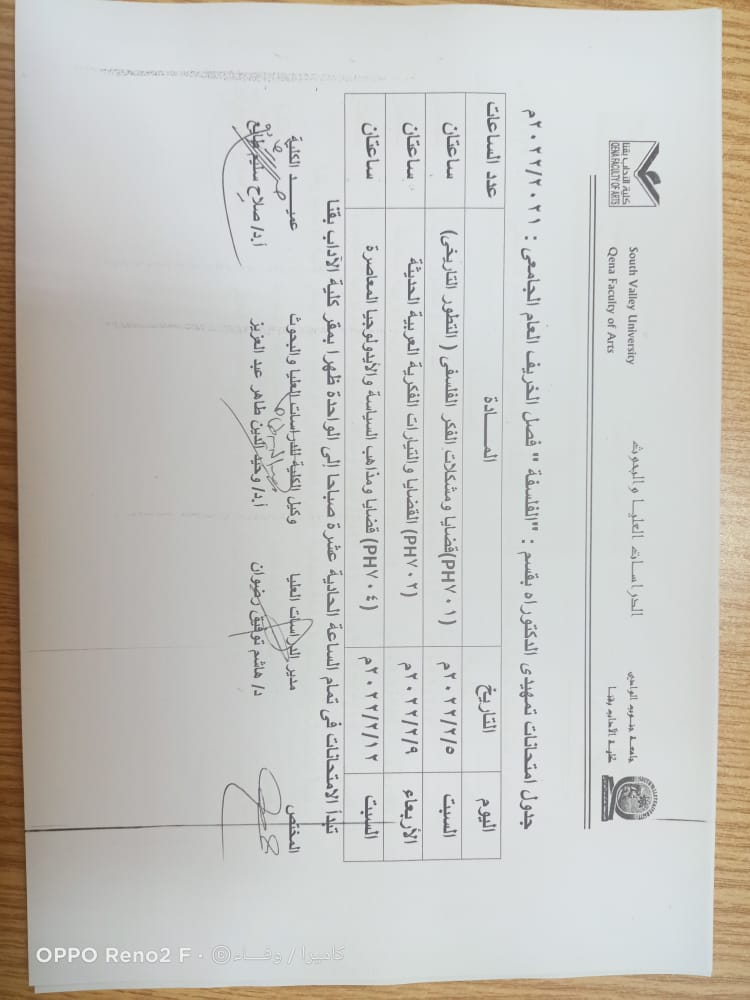 جامعة جنوب الوادي
كلية الآداب بقنا
الدراسات العليا والبحوث
South Valley University
Qena Faculty of Arts
كلية الآداب بقنا
QENA FACULTY OF ARTS
جدول امتحانات تمهيدى الدكتوراه بقسم : "الفلسفة " فصل الخريف العام الجامعى : ٢٠٢٢/٢٠٢١م
اليوم التاريخ المـــادة عدد الساعات
السبت ٢٠٢٢/٢/٥م (PH٧٠١)قضايا ومشكلات الفكر الفلسفى ( التطور التاريخى) ساعتان
الأربعاء ٢٠٢٢/٢/٩م (PH٧٠٢) القضايا والتيارات الفكرية العربية الحديثة ساعتان
السبت ٢٠٢٢/٢/١٢م (PH٧٠٤) قضايا ومذاهب السياسة والأيدولوجيا المعاصرة ساعتان
تبدأ الامتحانات فى تمام الساعة الحادية عشرة صباحا إلى الواحدة ظهرا بمقر كلية الآداب بقنا
المختص مدير الدراسات العليا وكيل الكلية للدراسات العليا والبحوث عميـــد الكلية
د/ هاشم توفيق رضوان أ.د/ وحيد الدين طاهر عبد العزيز أ.د/ صلاح سليم طايع
OPPO Reno2 F · ©كاميرا / وفـــاء